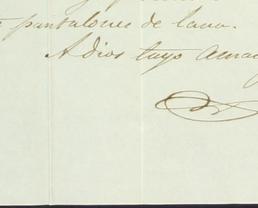 pantalones de lana.
A dios tuyo